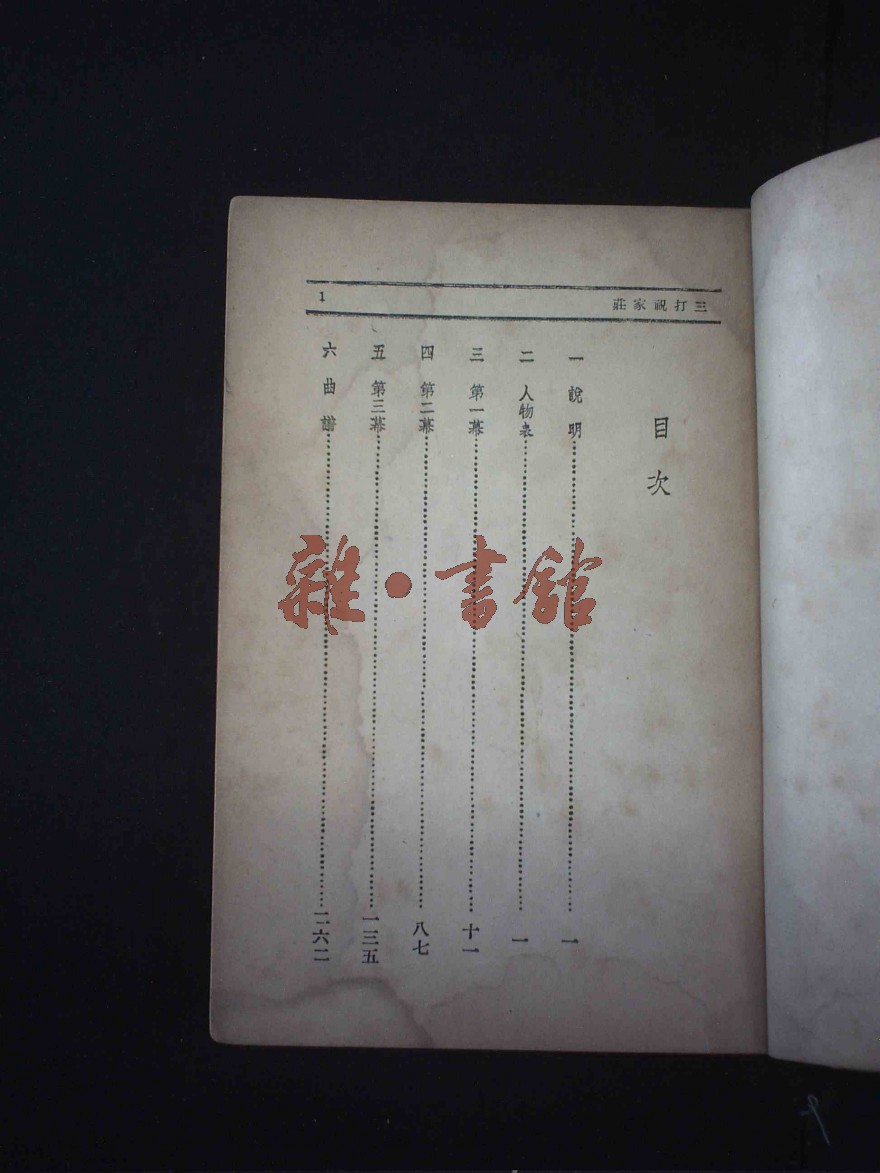 三打祝家莊
1
目次
一 說明……一
二 人物表……一
三 第一幕……十一
四 第二幕……八七
五 第三幕……一三五
六 曲譜……二六二
雜·書館